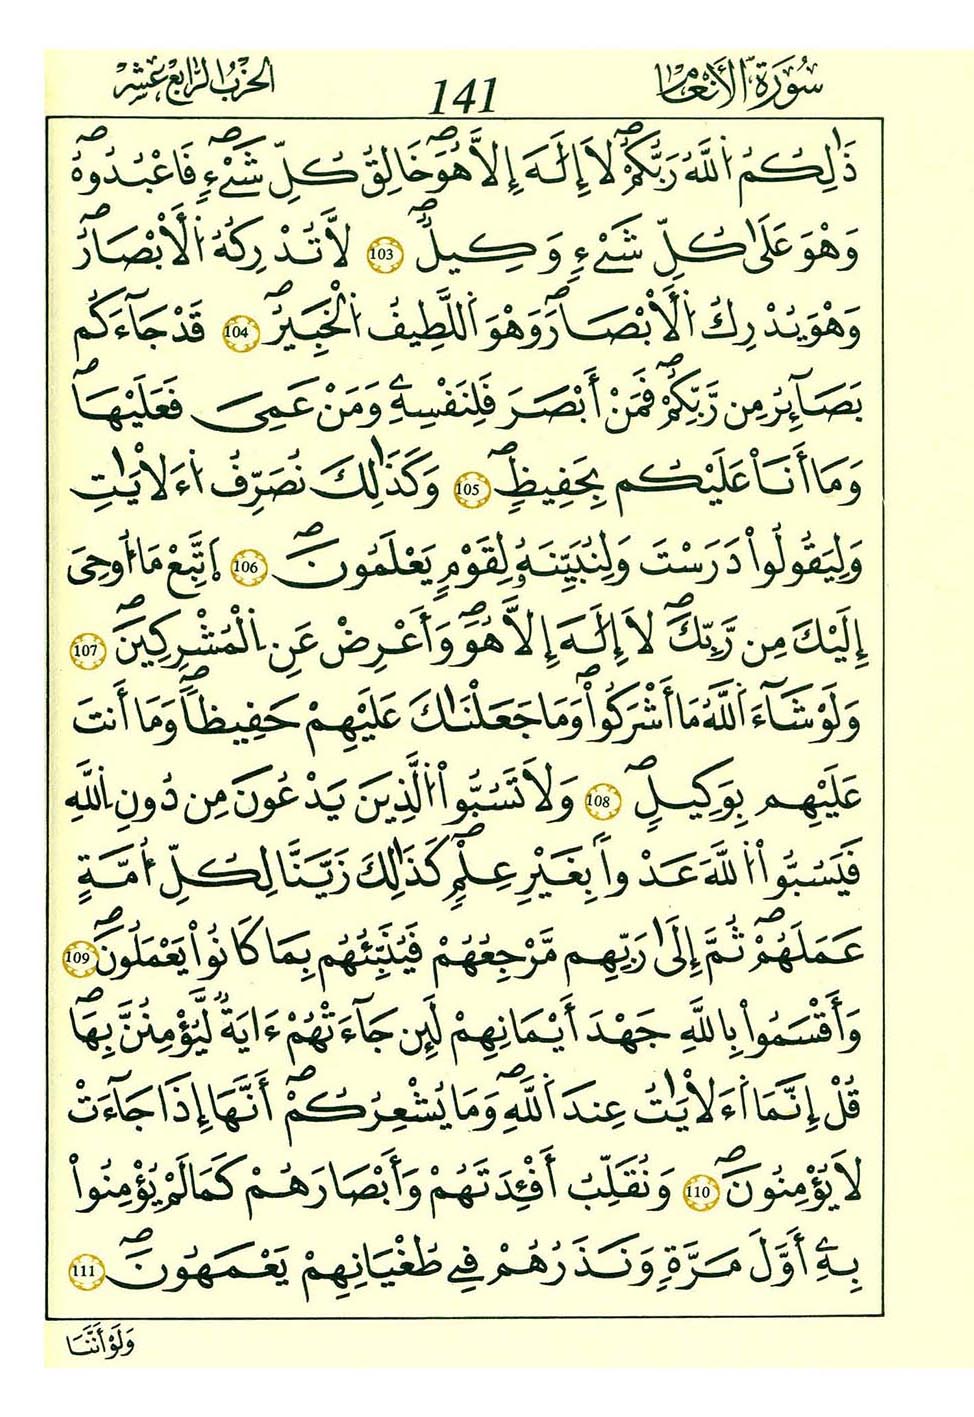 سُورَةُ الأَنْعَامِ 141 الحِزْبُ الرَّابِعَ عَشَرَ
ذَٰلِكُمُ اُ۬للَّهُ رَبُّكُمْۖ لَا إِلَٰهَ إِلَّا هُوَۖ خَٰلِقُ كُلِّ شَےْءٖ فَاعْبُدُوهُۖ
وَهُوَ عَلَىٰ كُلِّ شَےْءٖ وَكِيلٞۖ 103 لَّا تُدْرِكُهُ اُ۬لْأَبْصَٰرُۖ
وَهُوَ يُدْرِكُ اُ۬لْأَبْصَٰرَۖ وَهُوَ اَ۬للَّطِيفُ اُ۬لْخَبِيرُۖ 104 قَدْ جَآءَكُم
بَصَآئِرُ مِن رَّبِّكُمْۖ فَمَنْ أَبْصَرَ فَلِنَفْسِهِۦ وَمَنْ عَمِىَ فَعَلَيْهَاۖ
وَمَا أَنَا۠ عَلَيْكُم بِحَفِيظٖۖ 105 وَكَذَٰلِكَ نُصَرِّفُ اُ۬ءَلْأيَٰتِ
وَلِيَقُولُواْ دَرَسْتَ وَلِنُبَيِّنَهُۥ لِقَوْمٖ يَعْلَمُونَۖ 106 اَ۪تَّبِعْ مَا أُوحِىَ
إِلَيْكَ مِن رَّبِّكَۖ لَا إِلَٰهَ إِلَّا هُوَۖ وَأَعْرِضْ عَنِ اِ۬لْمُشْرِكِينَۖ 107
وَلَوْ شَآءَ اَ۬للَّهُ مَا أَشْرَكُواْۖ وَمَا جَعَلْنَٰكَ عَلَيْهِمْ حَفِيظاٗۖ وَمَا أَنتَ
عَلَيْهِم بِوَكِيلٖۖ 108 وَلَا تَسُبُّواْ اُ۬لَّذِينَ يَدْعُونَ مِن دُونِ اِ۬للَّهِ
فَيَسُبُّواْ اُ۬للَّهَ عَدْواَۢ بِغَيْرِ عِلْمٖۖ كَذَٰلِكَ زَيَّنَّا لِكُلِّ أُمَّةٍ
عَمَلَهُمْۖ ثُمَّ إِلَىٰ رَبِّهِم مَّرْجِعُهُمْ فَيُنَبِّئُهُم بِمَا كَانُواْ يَعْمَلُونَۖ 109
وَأَقْسَمُواْ بِاللَّهِ جَهْدَ أَيْمَٰنِهِمْ لَئِن جَآءَتْهُمْ ءَايَةٞ لَّيُؤْمِنُنَّ بِهَاۖ
قُلْ إِنَّمَا اَ۬ءَلْأيَٰتُ عِندَ اَ۬للَّهِۖ وَمَا يُشْعِرُكُمْۖ أَنَّهَا إِذَا جَآءَتْ
لَا يُؤْمِنُونَۖ 110 وَنُقَلِّبُ أَفْـِٕدَتَهُمْ وَأَبْصَٰرَهُمْ كَمَا لَمْ يُؤْمِنُواْ
بِهِۦ أَوَّلَ مَرَّةٖ وَنَذَرُهُمْ فِے طُغْيَٰنِهِمْ يَعْمَهُونَۖ 111
وَلَوْ أَنَّنَا